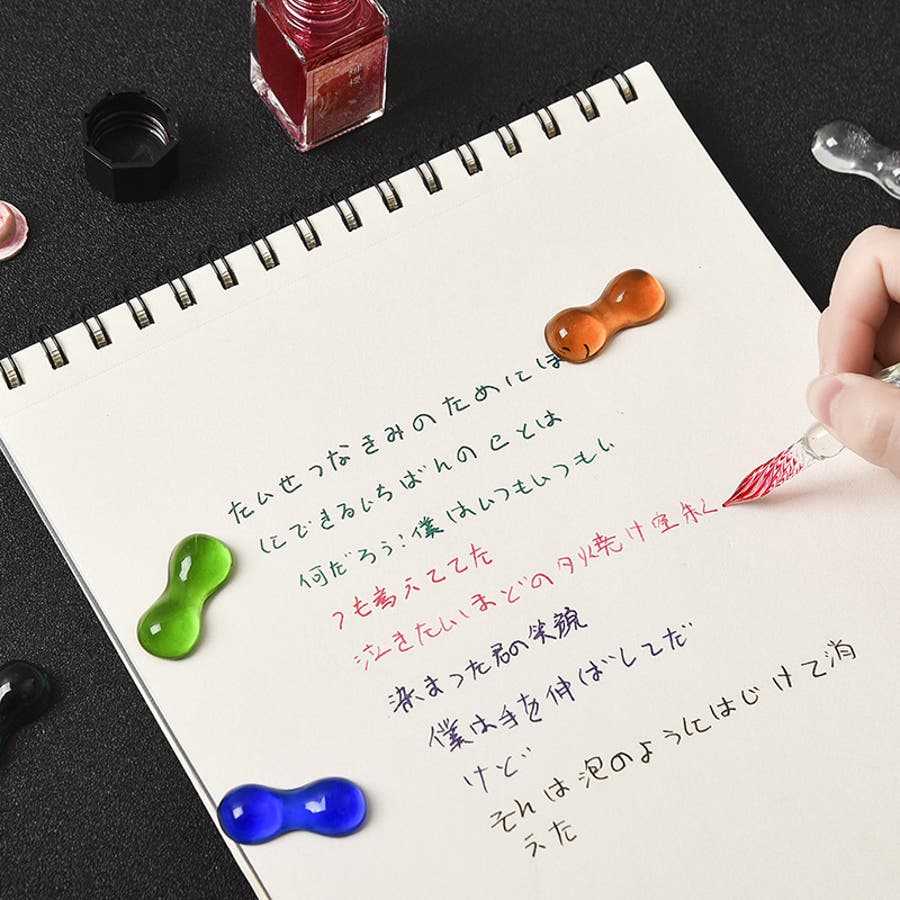 たいせつなきみのためにぼ
にできるいちばんのことは
何だろう?僕はいつもいつもい
つも考えててた
泣きたいほどの夕焼け空朱く
染まった君の笑顔
僕は手を伸ばしてだ
けど
それは泡のようにはじけて消
えた